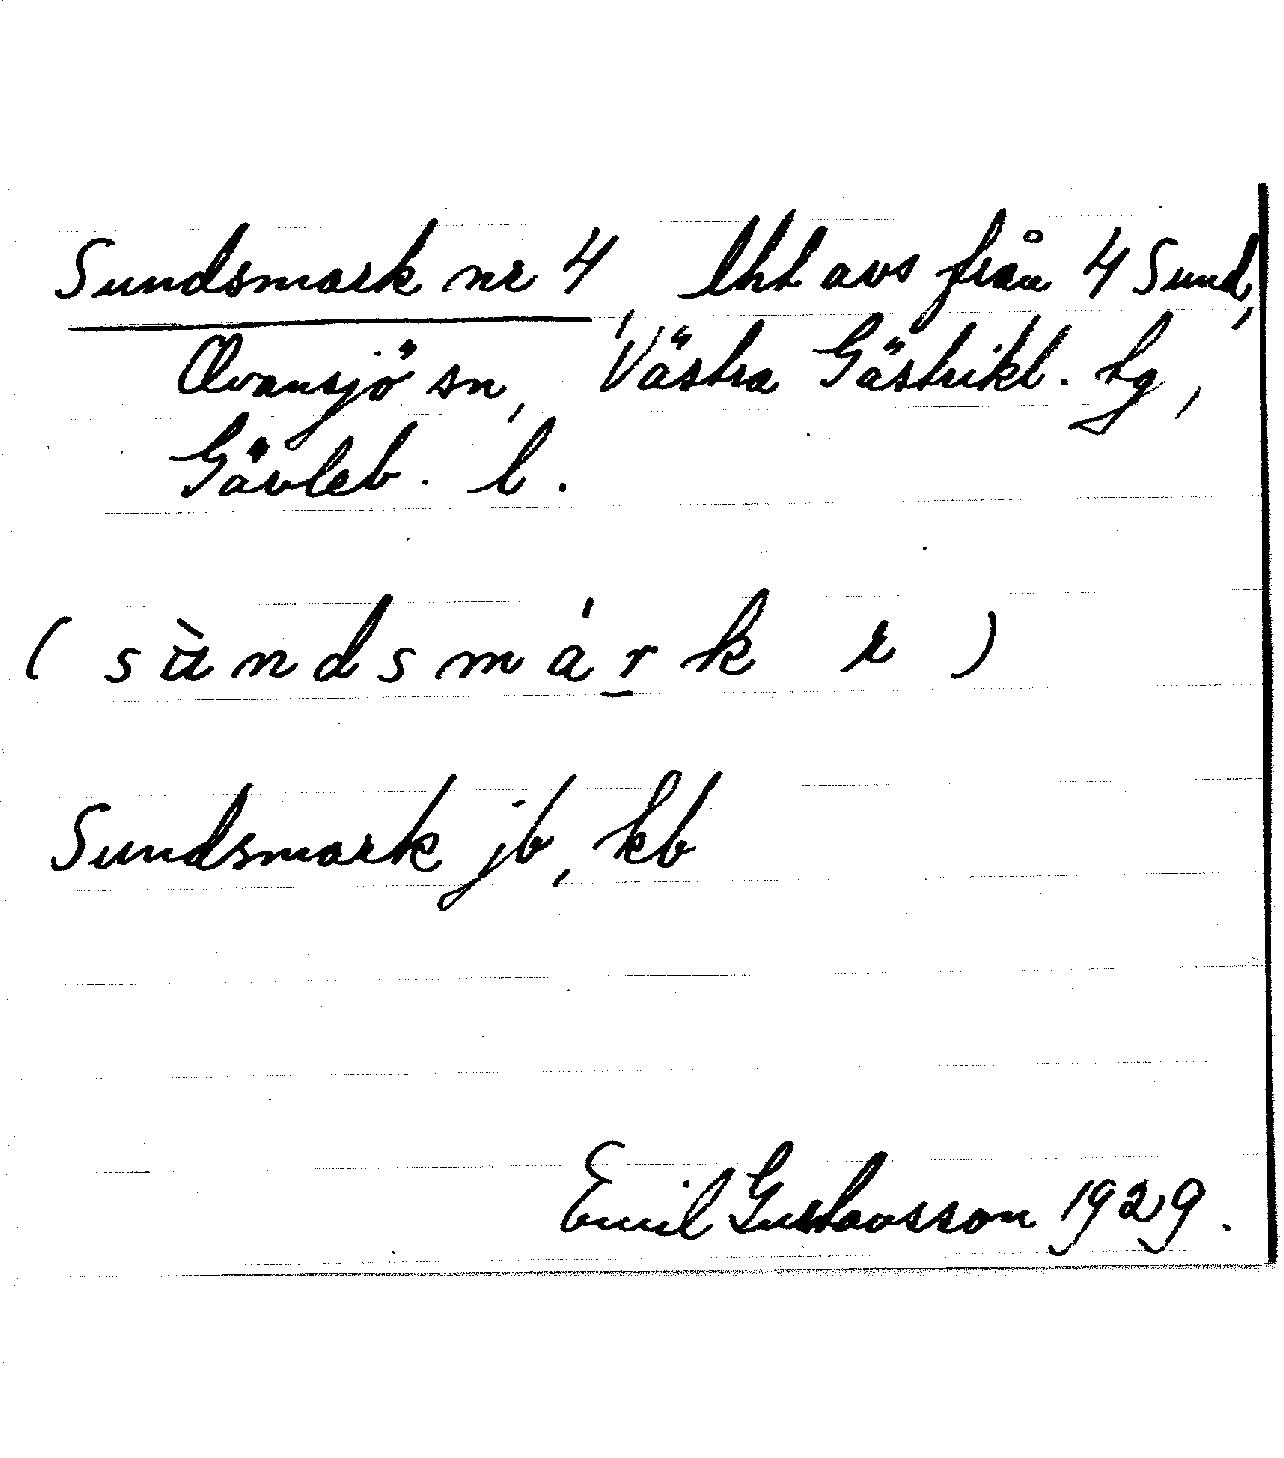 Sundsmark nr 4, lht avs från 4 Sund,
Ovansjö sn, Västra Gästrikl. tg,
Gävleb. l.
( sùndsmárk r )
Sundsmark jb, kb
Emil Gustavsson 1929.